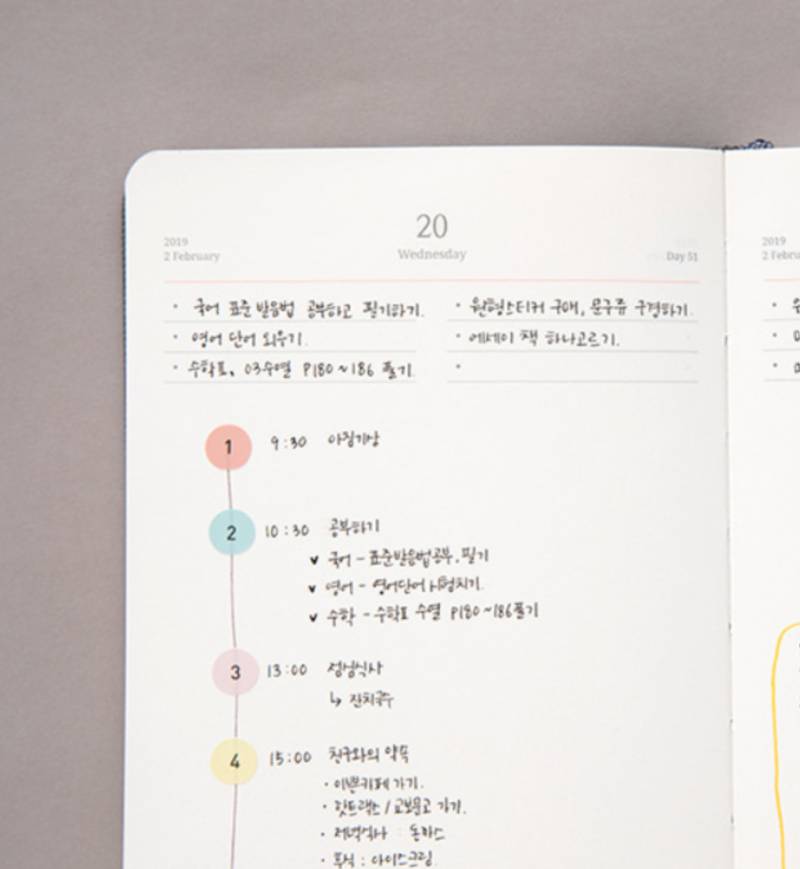 20
2019
2 February
Wednesday
Day 51
· 국어 표준발음법 공부하고 필기하기.
· 영어 단어 외우기.
· 수학Ⅱ, 03수열 P180~186 풀기.
· 원형스티커 구매, 문구류 구경하기.
· 에세이 책 하나고르기.
·
1 9:30 아침기상
2 10:30 공부하기
✔ 국어 - 표준발음법공부, 필기
✔ 영어 - 영어단어 시험치기.
✔ 수학 - 수학Ⅱ 수열 P180~186풀기
3 13:00 점심식사
↳ 잔치국수
4 15:00 친구와의 약속
· 이쁜카페 가기.
· 핫트랙스 / 교보문고 가기.
· 저녁식사 : 돈까스
· 후식 : 아이스크림.
2019
2 Febru